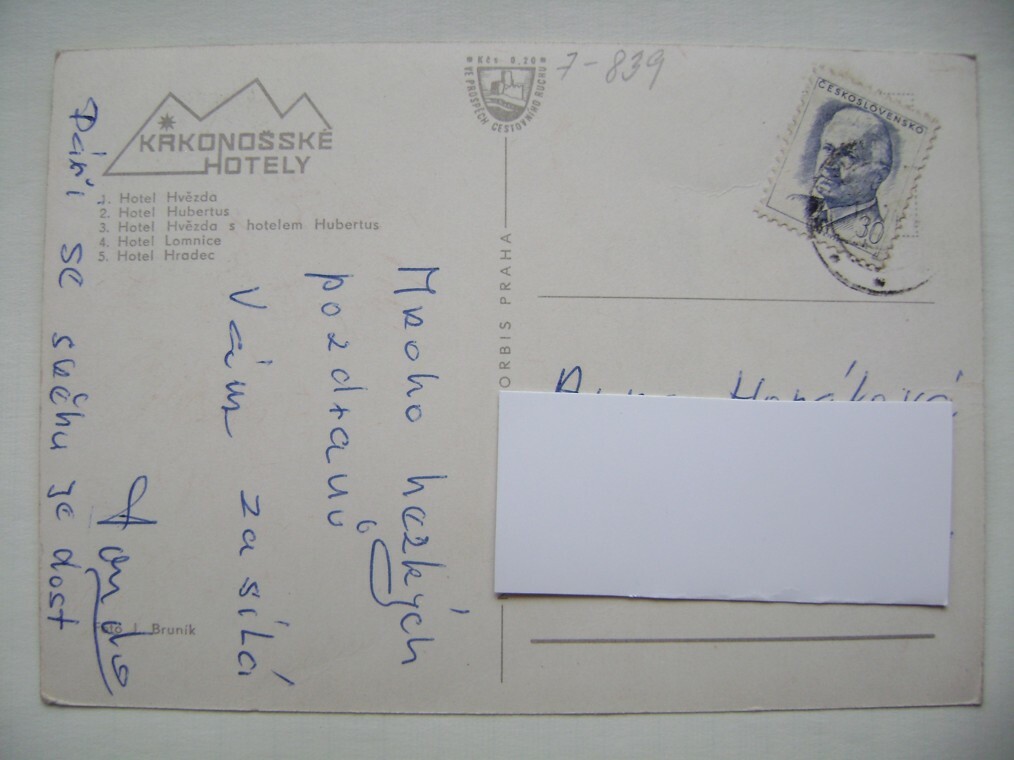 KRKONOŠSKÉ
HOTELY
1. Hotel Hvězda
2. Hotel Hubertus
3. Hotel Hvězda s hotelem Hubertus
4. Hotel Lomnice
5. Hotel Hradec
Kčs 0,20
VE PROSPĚCH CESTOVNÍHO RUCHU
7-839
ČESKOSLOVENSKO
30
ORBIS PRAHA
Mnoho hezkých
pozdravů
Vám zasílá
se sněhu je dost
Foto J. Bruník
Horáková